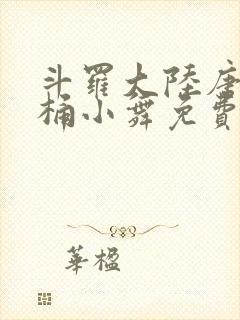 斗羅大陸唐
桶小舞免費
華楹